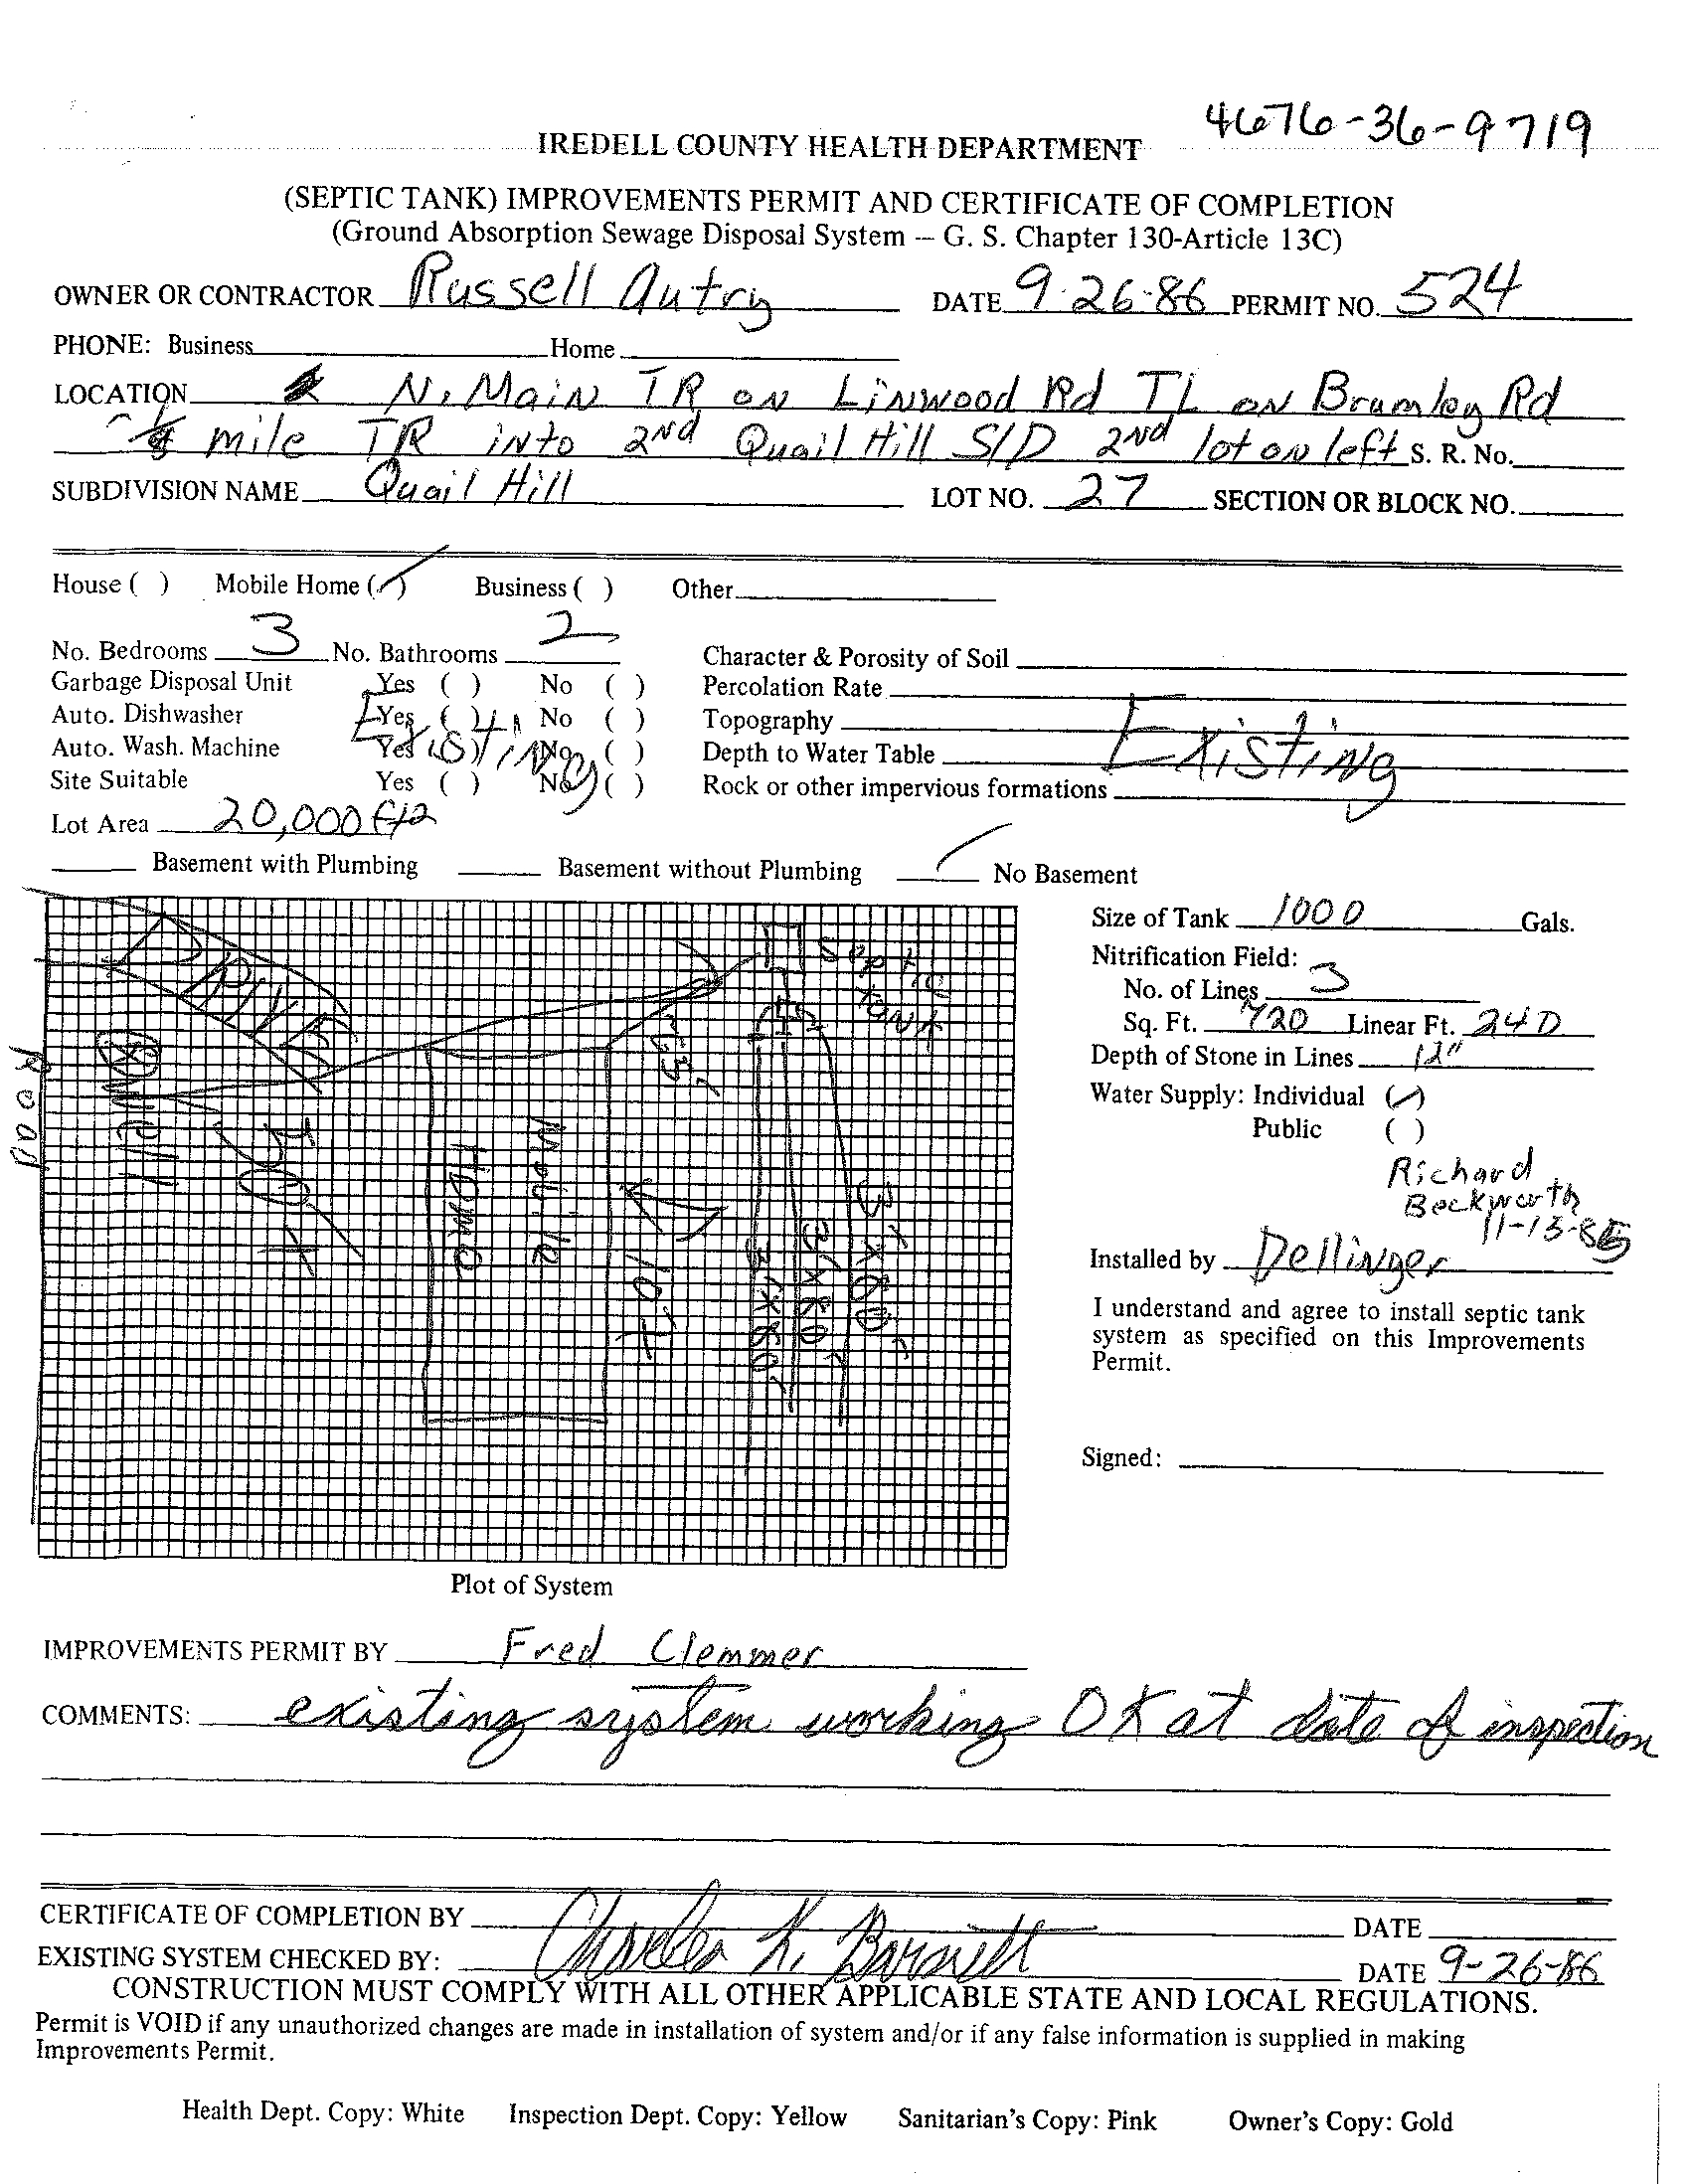 4676-36-9719
IREDELL COUNTY HEALTH DEPARTMENT
(SEPTIC TANK) IMPROVEMENTS PERMIT AND CERTIFICATE OF COMPLETION
(Ground Absorption Sewage Disposal System — G. S. Chapter 130-Article 13C)
OWNER OR CONTRACTOR Russell Autry DATE 9-26-86 PERMIT NO. 524
PHONE: Business Home
LOCATION N. Main TR on Linwood Rd TL on Brumley Rd
mile TR into 2nd Quail Hill S/D 2nd lot on left S. R. No.
SUBDIVISION NAME Quail Hill LOT NO. 27 SECTION OR BLOCK NO.
House ( ) Mobile Home (✓) Business ( ) Other
No. Bedrooms 3 No. Bathrooms 2 Character & Porosity of Soil
Garbage Disposal Unit Yes ( ) No ( ) Percolation Rate
Auto. Dishwasher Yes ( ) No ( ) Topography
Auto. Wash. Machine Yes ( ) No ( ) Depth to Water Table
Existing Existing
Site Suitable Yes ( ) No ( ) Rock or other impervious formations
Lot Area 20,000 ft2
Basement with Plumbing Basement without Plumbing ✓ No Basement
Septic
tank
DRIVE
Road
Well
Mobile
Home
10'±
3'x80'
3'x80'
3'x80'
Plot of System
Size of Tank 1000 Gals.
Nitrification Field:
No. of Lines 3
Sq. Ft. 720 Linear Ft. 240
Depth of Stone in Lines 12"
Water Supply: Individual (✓)
Public ( )
Richard
Beckworth
11-13-85
Installed by Dellinger
I understand and agree to install septic tank
system as specified on this Improvements
Permit.
Signed:
IMPROVEMENTS PERMIT BY Fred Clemmer
COMMENTS: existing system working OK at date of inspection
CERTIFICATE OF COMPLETION BY DATE
EXISTING SYSTEM CHECKED BY: Charles K. Barnett DATE 9-26-86
CONSTRUCTION MUST COMPLY WITH ALL OTHER APPLICABLE STATE AND LOCAL REGULATIONS.
Permit is VOID if any unauthorized changes are made in installation of system and/or if any false information is supplied in making
Improvements Permit.
Health Dept. Copy: White Inspection Dept. Copy: Yellow Sanitarian's Copy: Pink Owner's Copy: Gold